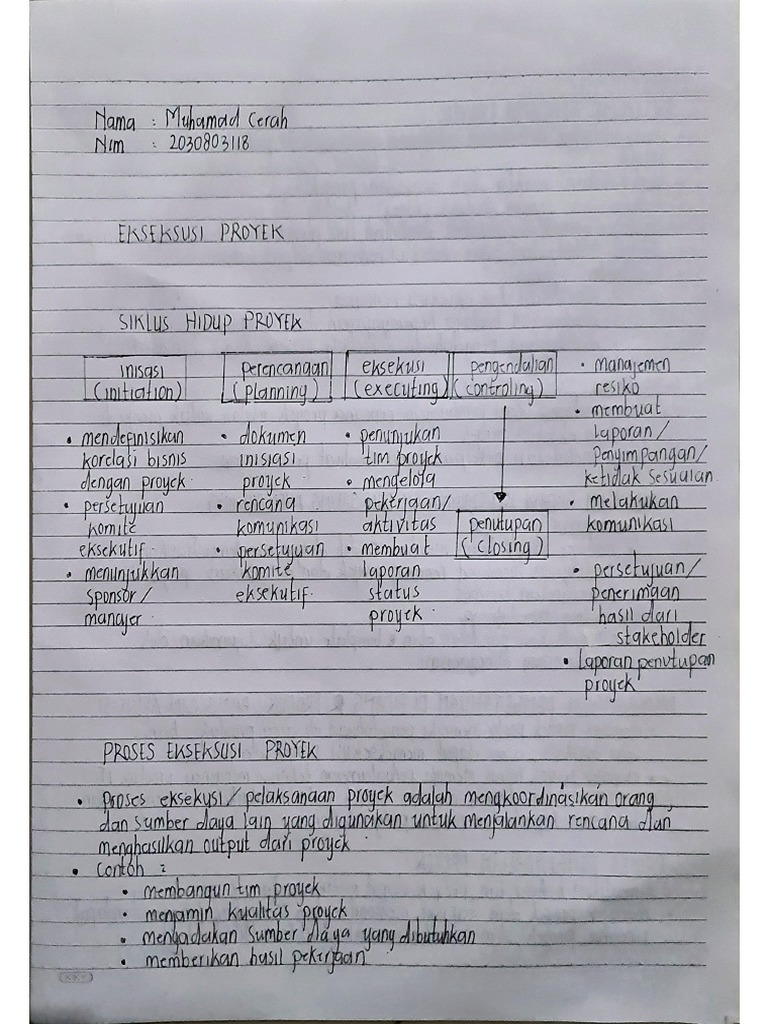 Nama : Muhamad Cerah
Nim : 2030803118
EKSEKSUSI PROYEK
SIKLUS HIDUP PROYEK
inisasi
(initiation)
perencangaan
(planning)
eksekusi
(executing)
pengendalian
(controling)
• manajemen
resiko
• membuat
laporan/
penyimpangan/
ketidak sesuaian
• melakukan
komunikasi
• mendefinisikan
korelasi bisnis
dengan proyek.
• persetujuan
komite
eksekutif.
• menunjukkan
sponsor/
manajer.
• dokumen
inisiasi
proyek
• rencana
komunikasi
• persetujuan
komite
eksekutif.
• penunjukan
tim proyek
• mengelola
pekerjaan/
aktivitas
• membuat
laporan
status
proyek.
penutupan
(closing)
• persetujuan/
penerimaan
hasil dari
stakeholder
• laporan penutupan
proyek
PROSES EKSEKSUSI PROYEK
• proses eksekusi/pelaksanaan proyek adalah mengkoordinasikan orang
dan sumber daya lain yang digunakan untuk menjalankan rencana dan
menghasilkan output dari proyek.
• Contoh :
• membangun tim proyek
• menjamin kualitas proyek
• mengadakan sumber daya yang dibutuhkan
• memberikan hasil pekerjaan.